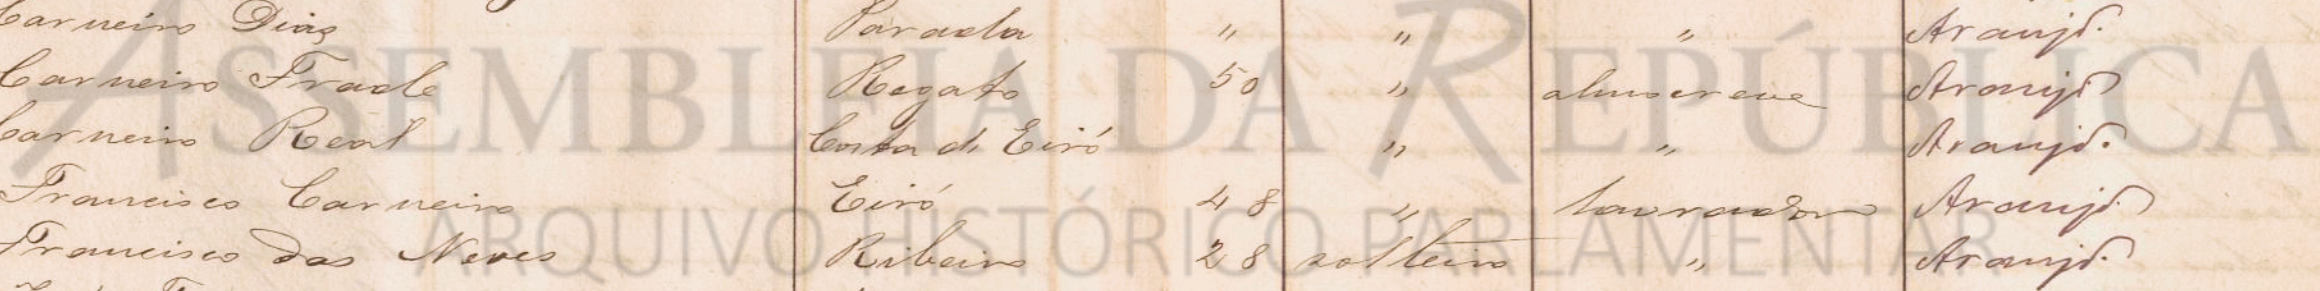 Carneiro Dias Parada " " " Araujo.
Carneiro Frade Regato 50 " almocreve Araujo
Carneiro Real Costa d'Eiró " " Araujo.
Francisco Carneiro Eiró 48 " lavrador Araujo
Francisco das Neves Ribeiro 28 solteiro " Araujo.
ASSEMBLEIA DA REPÚBLICA
ARQUIVO HISTÓRICO PARLAMENTAR